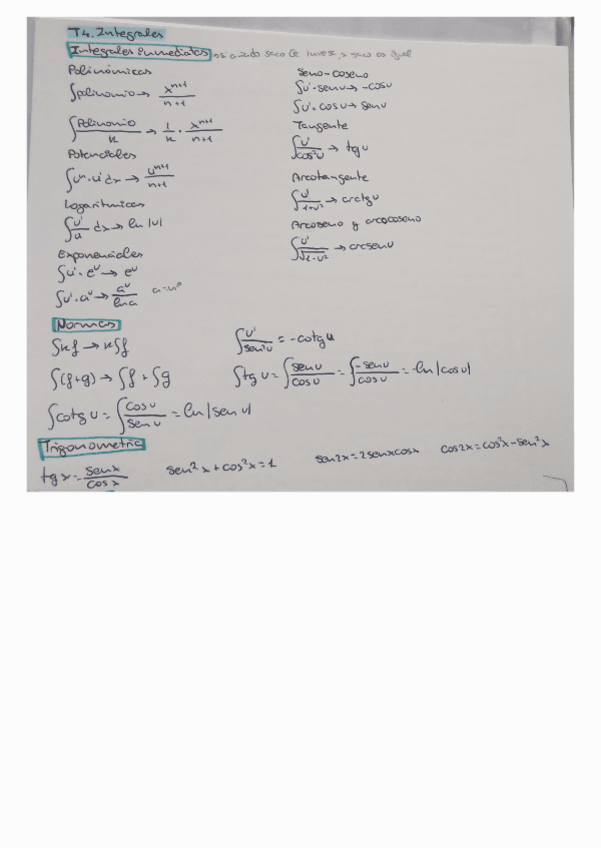 T4. Integrales
Integrales inmediatas
Polinómicas
∫polinomio → x^(n+1)/(n+1)
∫Polinomio/k → 1/k · x^(n+1)/(n+1)
Potenciales
∫uⁿ·u' dx → u^(n+1)/(n+1)
Logarítmicas
∫u'/u dx → ln |u|
Exponenciales
∫u'·eᵘ → eᵘ
∫u'·aᵘ → aᵘ/ln a a=nº
Seno-coseno
∫u'·sen u → -cos u
∫u'·cos u → sen u
Tangente
∫u'/cos²u → tg u
Arcotangente
∫u'/(1+u²) → arctg u
Arcoseno y arcocoseno
∫u'/√(1-u²) → arcsen u
Normas
∫kf → k∫f
∫u'/sen²u = -cotg u
∫(f+g) → ∫f + ∫g
∫tg u = ∫sen u/cos u = ∫-sen u/cos u = -ln |cos u|
∫cotg u = ∫cos u/sen u = ln |sen u|
Trigonometria
tg x = sen x/cos x sen²x + cos²x = 1 sen2x = 2senxcosx cos2x = cos²x - sen²x